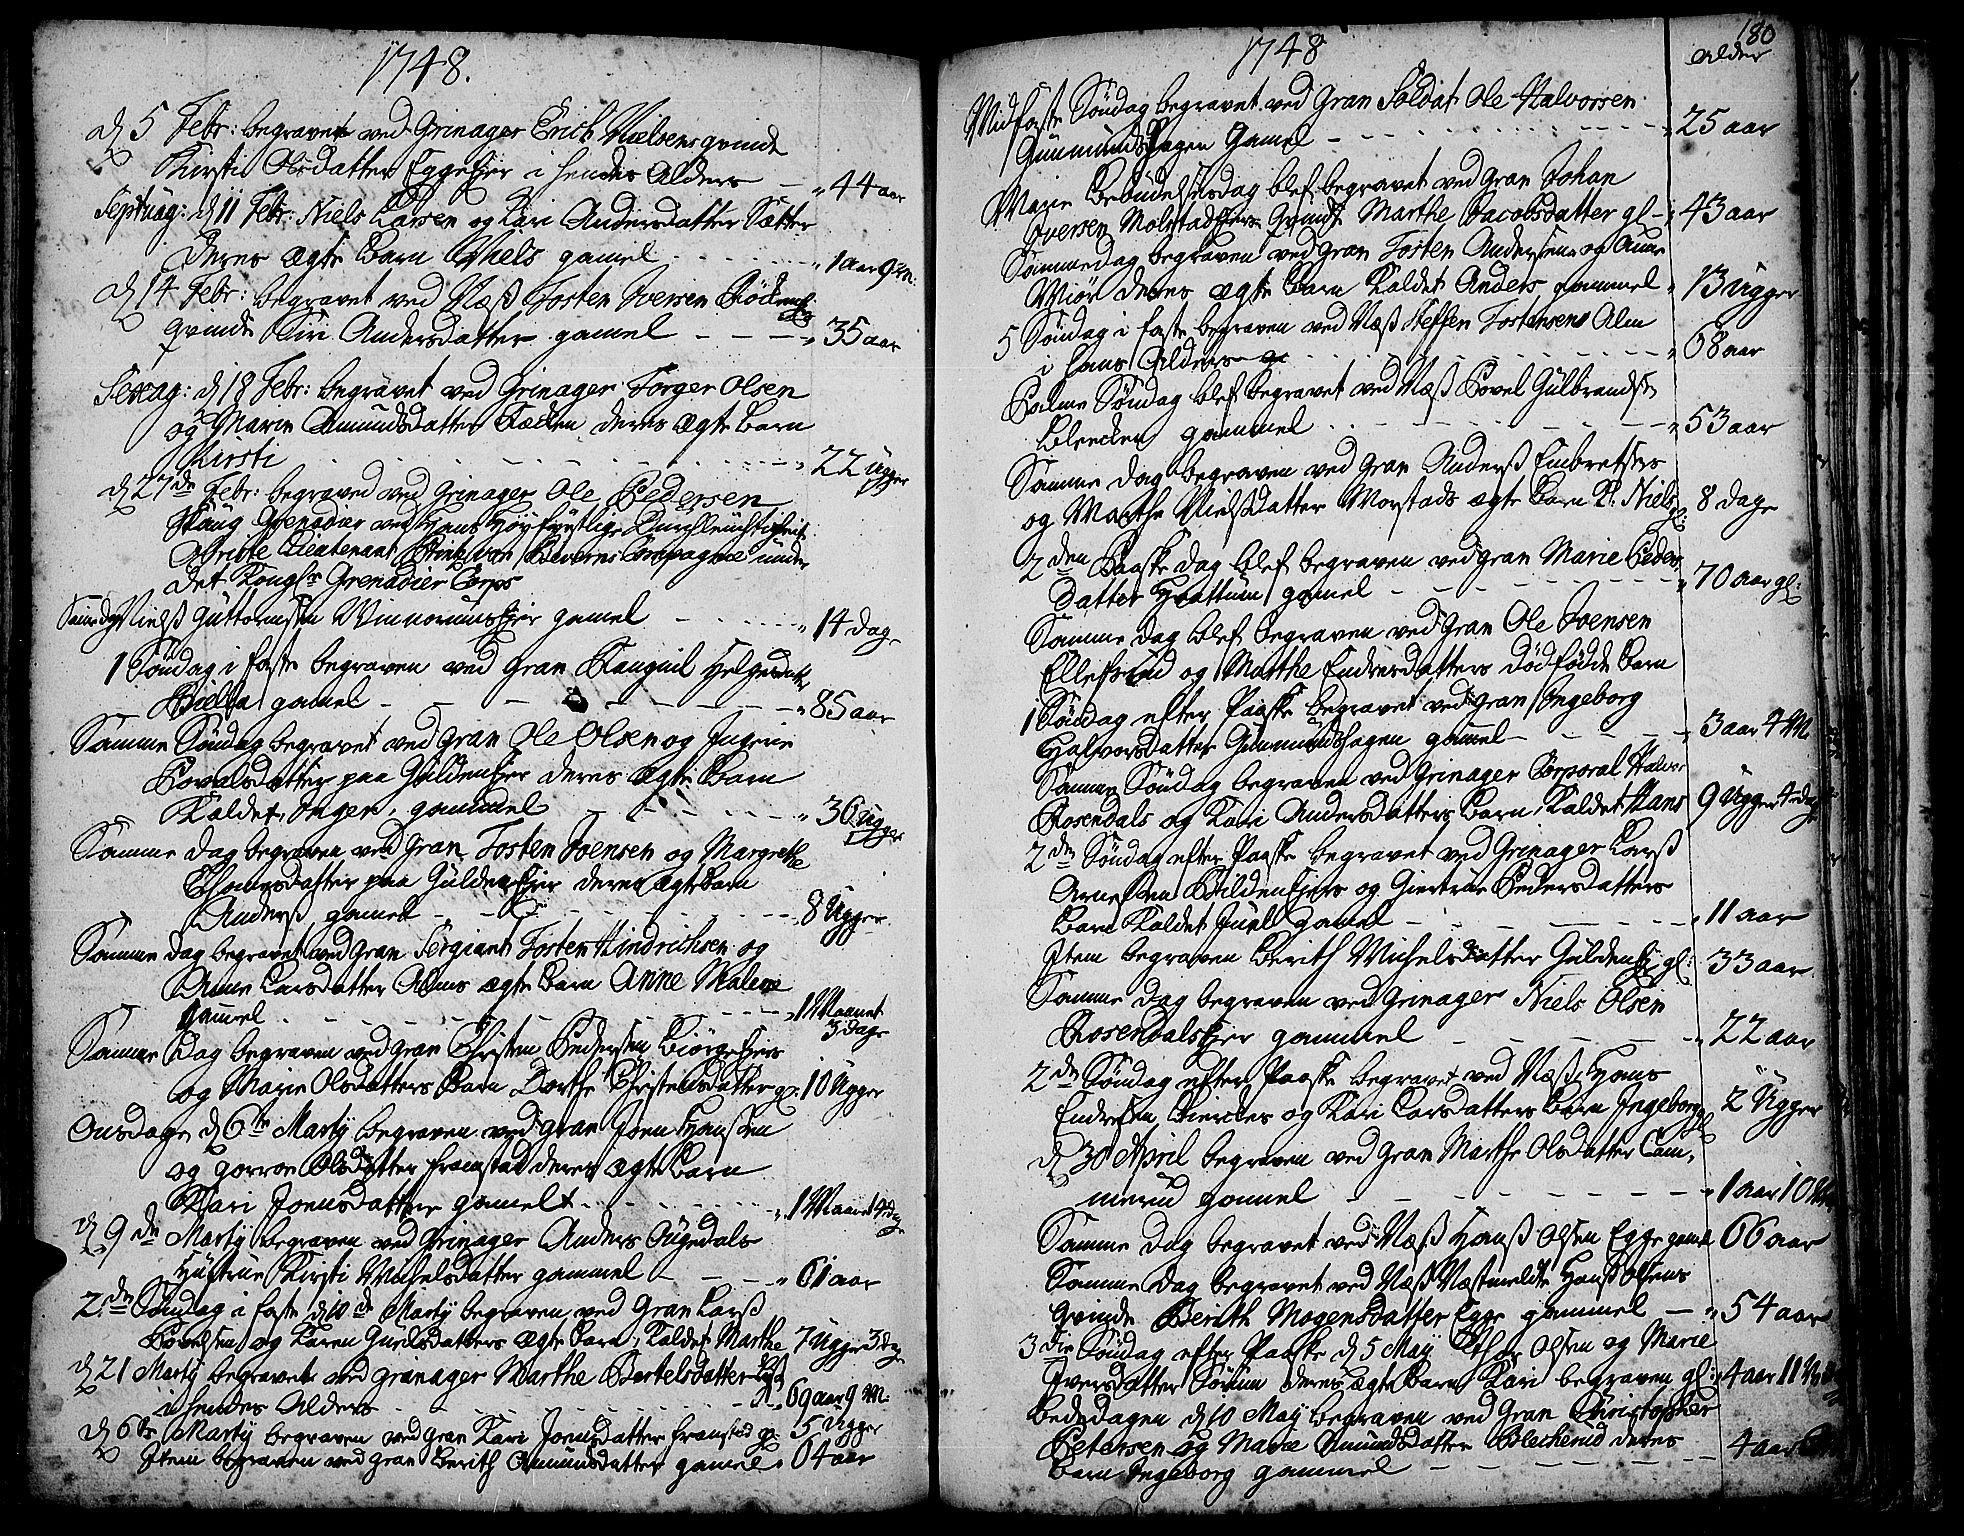 1748.
d 5 Febr: begravet ved Grinager Erich Nielsens qvinde
Kirsti Olsdatter Eggeejer i hendes Alders — 44 aar
Septuag: d 11 Febr: Niels Larsen og Kari Andersdatter Sætter
deres ægte Barn Niels gamel 1 aar 9
d 14 Febr: begravet ved Næss Tosten Iversen
qvinde Siri Andersdatter gamel - - - 35 aar
Sexag: d 18 Febr: begravet ved Grinager Torger Olsen
og Marie Amundsdatter deres ægte Barn
Kirsti 22 ugger
d 27de Febr: begraved ved Grinager Ole Pedersen
Haug Grenadier ved Hans Høyfyrstlige Durchleuchtigheit
Obriste Lieutenant von Beverns Compagnie under
det Kongls Grenadier Corps
Samedag Nielss Guttormsen gamel 14 dage
1 Søndag i faste begraven ved Gran Ranguil Helgesdatter
Bielba gamel 85 aar
Samme Søndag begravet ved Gran Ole Olsen og Ingerie
Povelsdatter paa Guldenejer deres ægte Barn
Kaldet Inger, gammel 36 ugger
Samme dag begraven ved Gran Tosten Svensen og Margrethe
Thomesdatter paa Guldenejer deres ægte Barn
Anderss gamel 8 ugger
Samme dag begravet ved Gran Sergiant Tosten Hindrichsen og
Anne Larsdatter Alms ægte Barn Anne Malene
gamel 1 Maanet
3 dage
Samme dag begraven ved Gran Christen Pedersen
og Marie Olsdatters Barn Dorthe Christensdatter gl: 10 ugger
Onsdagen d 6te Martij begraven ved Gran Joen Hanssen
og Gorroe Olsdatter Framstad deres ægte Barn
Kari Joensdatter gamelt 1 Maanet 14 dage
d 9de Martij begraven ved Grinager Anders Augedals
Hustrue Kirsti Michelsdatter gammel - - - 61 aar
2den Søndag i faste d 10de Martij begraven ved Gran Larss
Povelsen og Karen Gurdsdatters ægte Barn, Kaldet Marthe 7 ugger 3 dage
d 21 Martij begravet ved Grinager Marthe Bertelsdatter
i hendes Alders 69 aar 9 M.
d 6te Martij begraven ved Gran Kari Joensdatter Framstad gl. 5 ugger
Item begraven ved Gran Berith Amundsdatter gamel 64 aar
1748
180
Alder
Midfaste Søndag begravet ved Gran Soldat Ole Halvorsen
Gunmundshagen Gamel 25 aar
Marie Bebudelsesdag blef begravet ved Gran Johan
Iversen Molstadejers Qvinde Marthe Jacobsdatter gl - 43 aar
Sammedag begraven ved Gran Tosten Andersen og Anne
deres ægte Barn Kaldet Anders gammel 13 ugger
5 Søndag i faste begraven ved Næss Steffen Tostensen Alm
i hans Alders 68 aar
Palme Søndag blef begravet ved Næss Povel Gulbrands:
Blecken gammel 53 aar
Samme dag begraven ved Gran Anderss Embretsens
og Marthe Nielsdatter Morstads ægte Barn K. Niels gl: 8 dage
2den Paaske dag blef begraven ved Gran Marie Peders
datter Hvattum gamel 70 aar gl:
Samme dag blef begraven ved Gran Ole Svensen
Ellefsrud og Marthe Endresdatters dødfødde Barn
1 Søndag efter Paaske begravet ved Gran Ingeborg
Halvorsdatter Gunmundshagen gamel 3 aar 4 M
Samme Søndag begraven ved Grinager Corporal Halvor
Rosendals og Kari Andersdatters Barn Kaldet Hans 9 ugger 4 dage
2den Søndag efter Paaske begravet ved Grinager Larss
Arnesen Guldenejers og Giertrue Pedersdatters
Barn Kaldet Juel gamel 11 aar
Item begraven Berith Michelsdatter Guldenejer gl: 33 aar
Samme dag begraven ved Grinager Niels Olsen
Rosendalsejer gammel 22 aar
2den Søndag efter Paaske begravet ved Næss Hans
Endresen Bierckes og Kari Larsdatters Barn Ingeborg gl 2 ugger
d 30 April begraven ved Gran Marthe Olsdatter Cam,
merud gammel 1 aar 10 M
Samme dag begravet ved Næss Hanss Olsen Egge gamel 66 aar
Samme dag begravet ved Næss Hanss Olsens
qvinde Berith Mogensdatter Egge gammel — 54 aar
3die Søndag efter Paaske d 5 Maij Olsen og Marie
Iversdatter Sørum deres ægte Barn Kari begraven gl: 4 aar 11 M
Bededagen d 10 Maij begraven ved Gran Christopher
Petersen og Marie Amundsdatter Blecherud deres
Barn Ingeborg gammel 4 aar